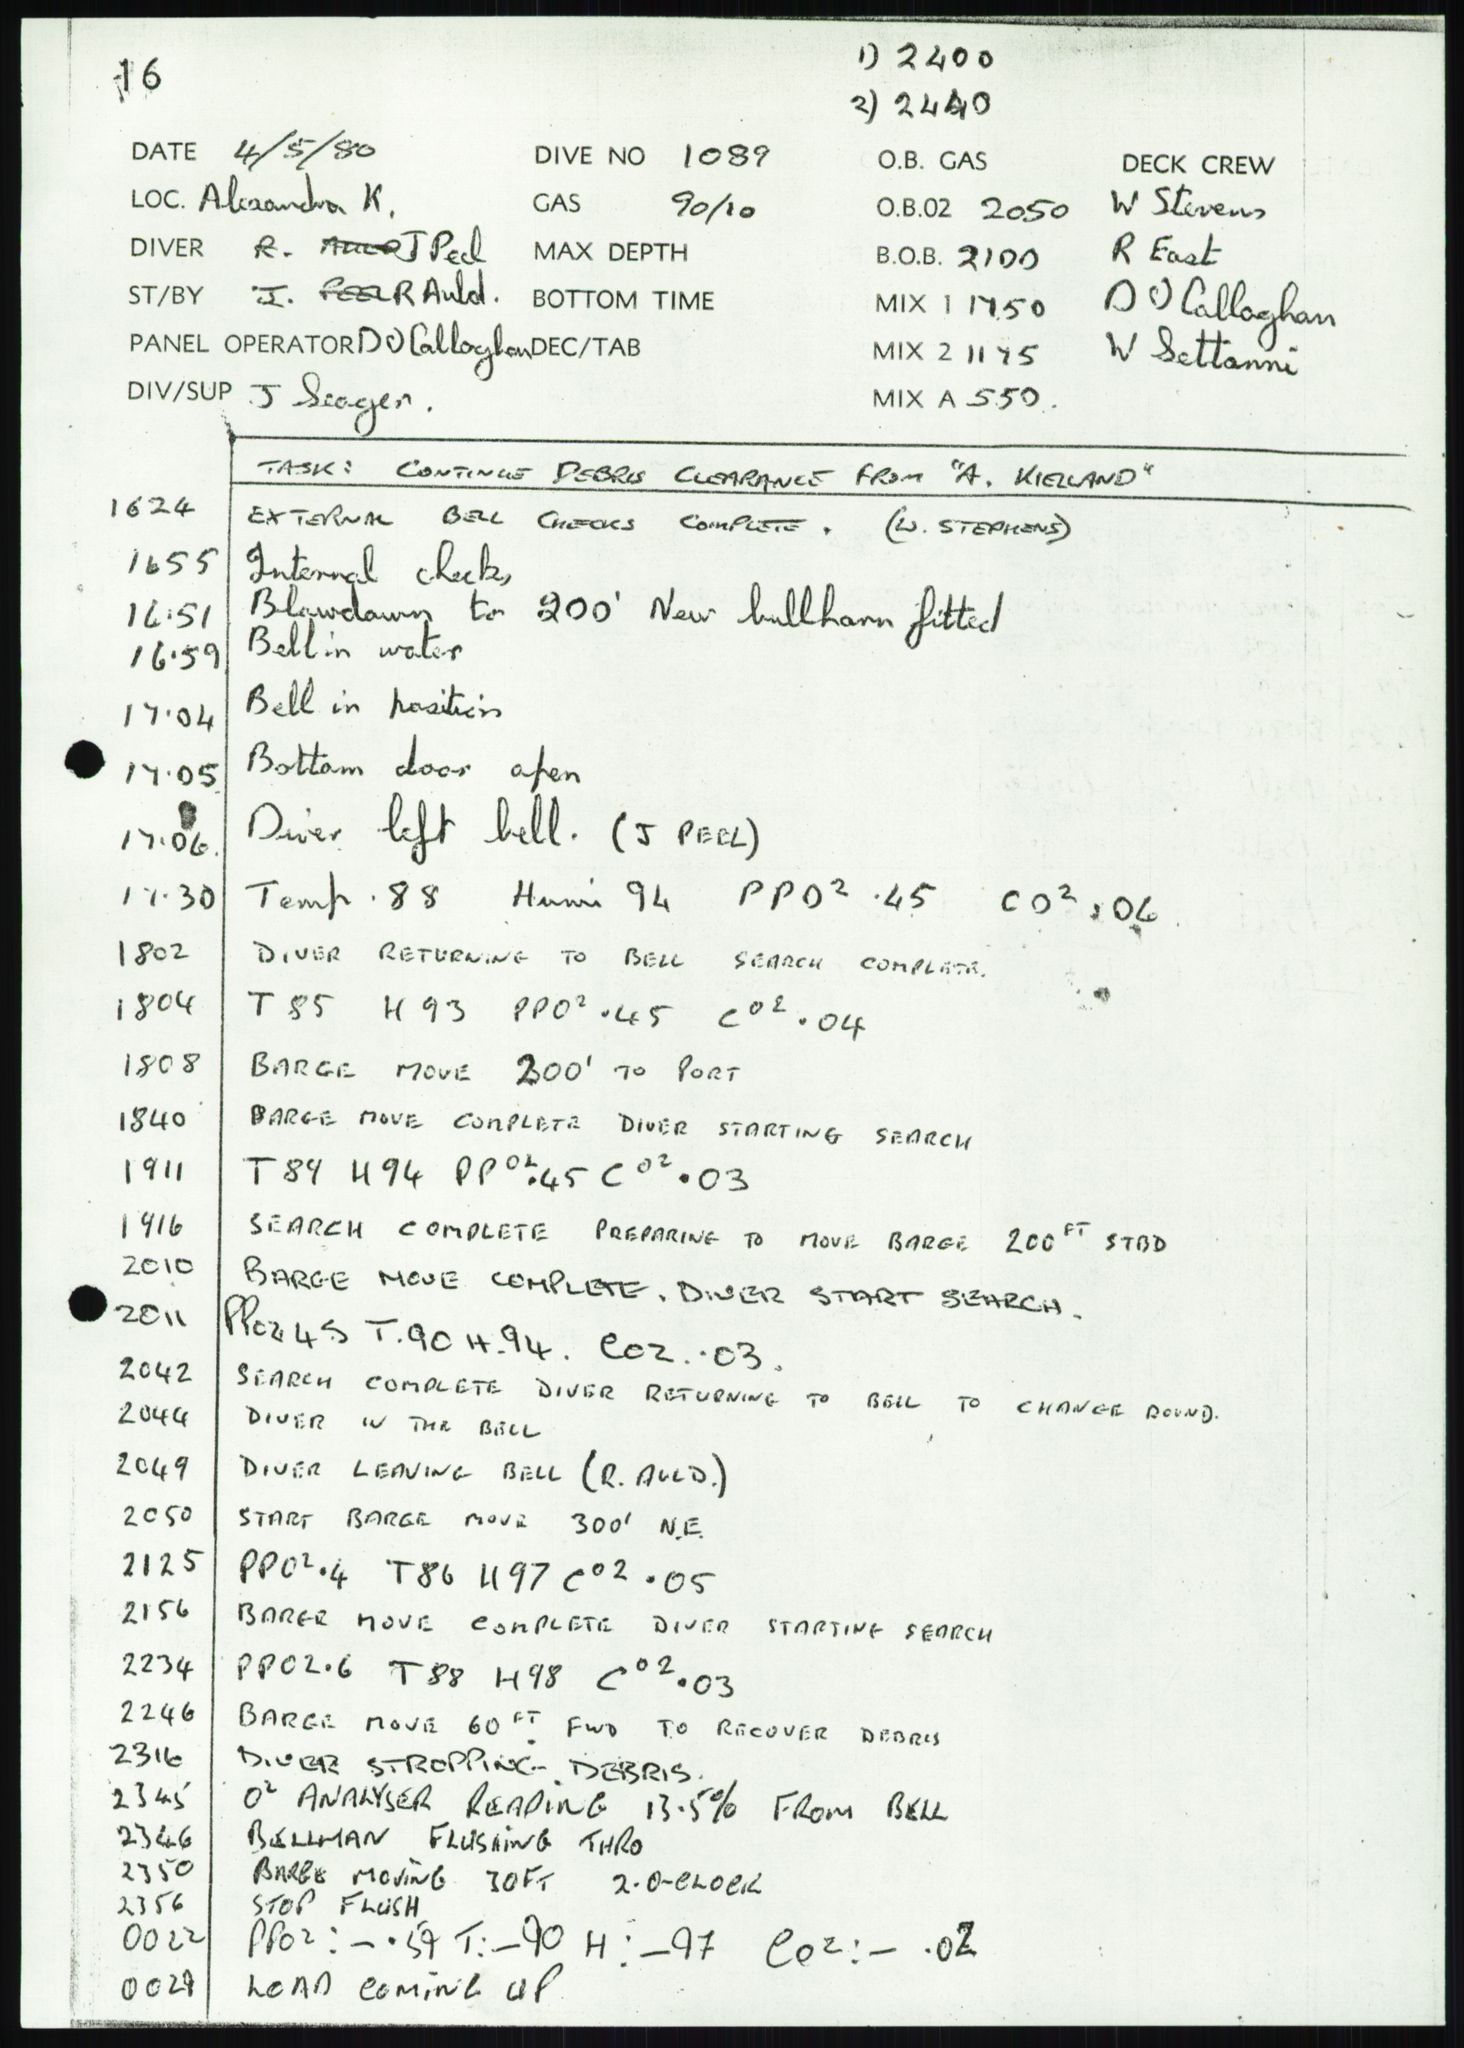 16
1) 2400
2) 2440
DATE 4/5/80 DIVE NO 1089 O.B. GAS DECK CREW
LOC. Alexandra K. GAS 90/10 O.B.02 2050 W Stevens
DIVER R. J Peel MAX DEPTH B.O.B. 2100 R East
ST/BY J. PEEL R Auld. BOTTOM TIME MIX 1 1750 D O'Callaghan
PANEL OPERATOR D O'Callaghan DEC/TAB MIX 2 1175 W Settanni
DIV/SUP J Seager. MIX A 550.
TASK: CONTINUE DEBRIS CLEARANCE FROM "A. KIELLAND"
1624 EXTERNAL BELL CHECKS COMPLETE. (W. STEPHENS)
1655 Internal checks
16.51 Blowdown to 200' New bullhorn fitted
16.59 Bell in water
17.04 Bell in position
17.05 Bottom door open
17.06. Diver left bell. (J PEEL)
17.30 Temp .88 Humi 94 PPO2 .45 CO2 .04
1802 DIVER RETURNING TO BELL SEARCH COMPLETE.
1804 T 85 H 93 PPO2 .45 CO2 .04
1808 BARGE MOVE 200' TO PORT
1840 BARGE MOVE COMPLETE DIVER STARTING SEARCH
1911 T 89 H 94 PPO2 .45 CO2 .03
1916 SEARCH COMPLETE PREPARING TO MOVE BARGE 200FT STBD
2010 BARGE MOVE COMPLETE. DIVER START SEARCH.
2011 PPO2 45 T.90 H.94. CO2..03.
2042 SEARCH COMPLETE DIVER RETURNING TO BELL TO CHANGE ROUND.
2044 DIVER IN THE BELL
2049 DIVER LEAVING BELL (R. AULD.)
2050 START BARGE MOVE 300' N.E.
2125 PPO2 .4 T86 H97 CO2 .05
2156 BARGE MOVE COMPLETE DIVER STARTING SEARCH
2234 PPO2.6 T88 H98 CO2 .03
2246 BARGE MOVE 60FT FWD TO RECOVER DEBRIS
2316 DIVER STROPPING DEBRIS.
2345 O2 ANALYSER READING 13.5% FROM BELL
2346 BELLMAN FLUSHING THRO
2350 BARGE MOVING 30FT 2.O-CLOCK
2356 STOP FLUSH
0022 PPO2:- .59 T:-90 H:-97 CO2:- .02
0029 LOAD COMING UP